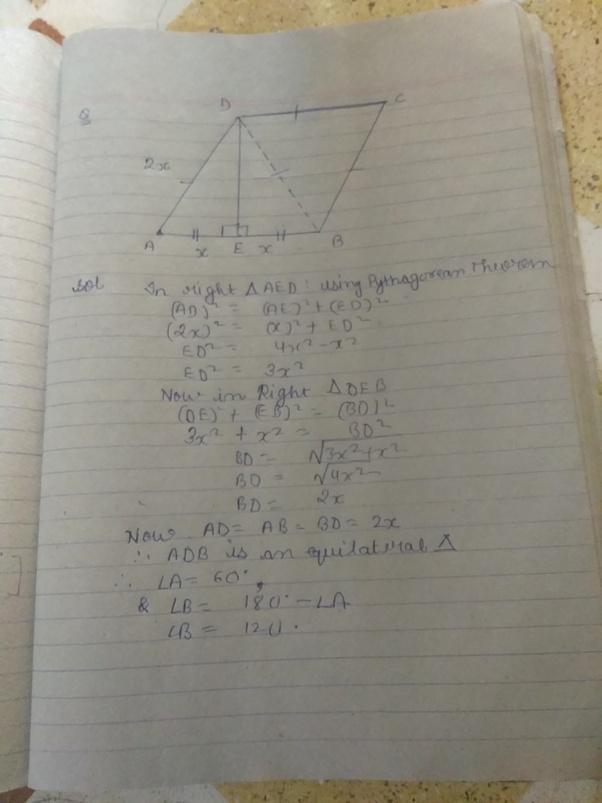 Q
D
C
2x
A
x
E
x
B
Sol In right Δ AED: using Pythagorean Theorem
(AD)² = (AE)² + (ED)²
(2x)² = (x)² + ED²
ED² = 4x² - x²
ED² = 3x²
Now in Right Δ DEB
(DE)² + (EB)² = (BD)²
3x² + x² = BD²
BD = √3x²+x²
BD = √4x²
BD = 2x
Now AD = AB = BD = 2x
∴ ADB is an equilateral Δ
∴ ∠A = 60°
& ∠B = 180° - ∠A
∠B = 120°